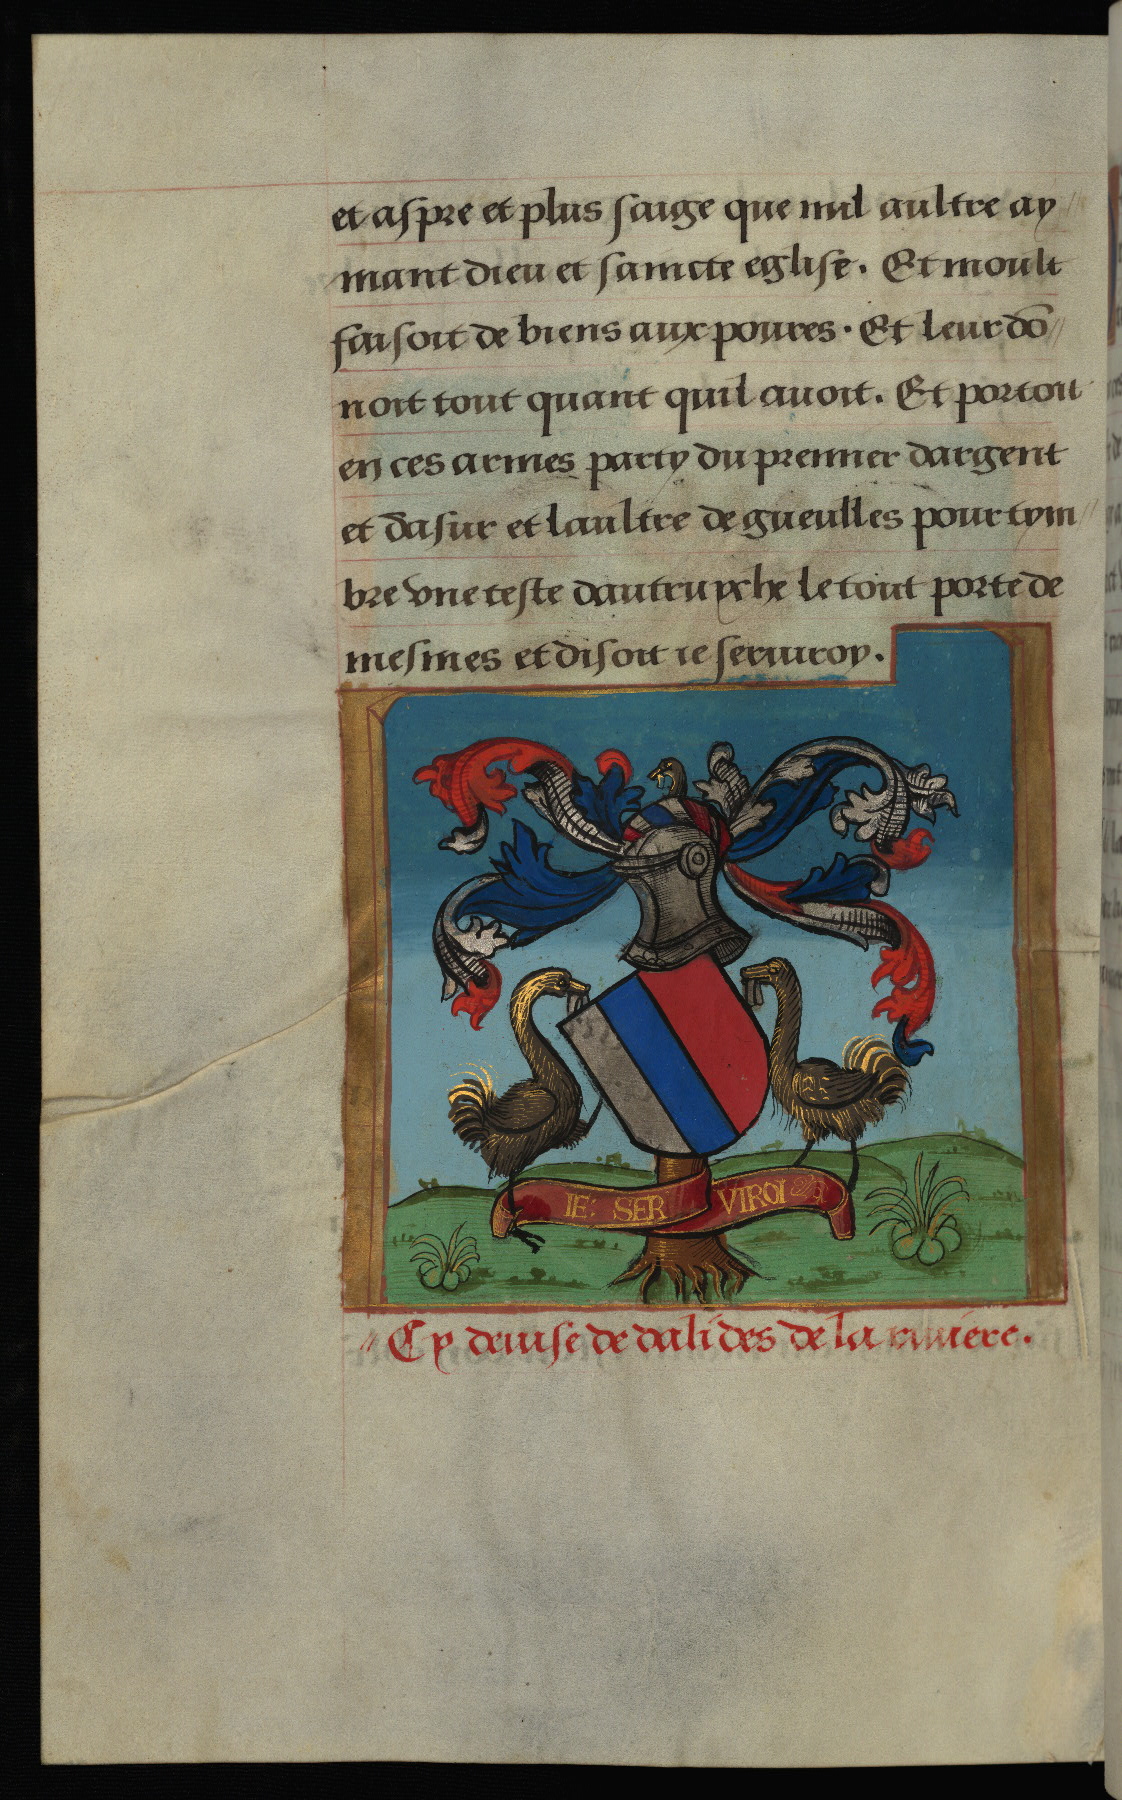 et aspre et plus saige que nul aultre ay
mant dieu et saincte eglise. Et moult
faisoit de biens aux poures. Et leur dō
noit tout quant quil auoit. Et portoit
en ces armes party du premier dargent
et dasur et laultre de gueulles pour tym
bre vne teste dautruxche le tout porte de
mesmes et disoit ie seruiroy.
IE: SER VIROI
Cy deuise de dalides de la riuiere.